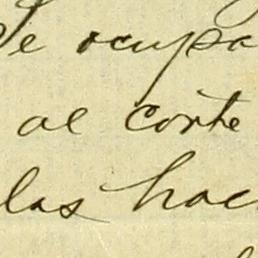 Se ocupa
al corte
las hac